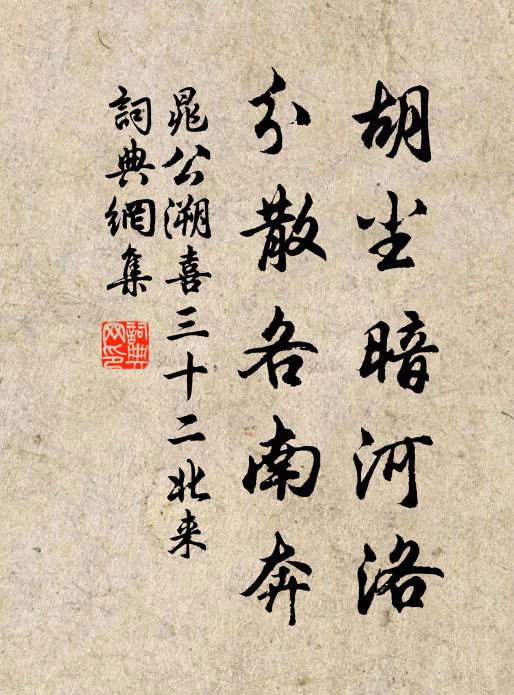 胡尘暗河洛
分散各南奔
晁公溯喜三十二北来
詞典網集
詞典网印